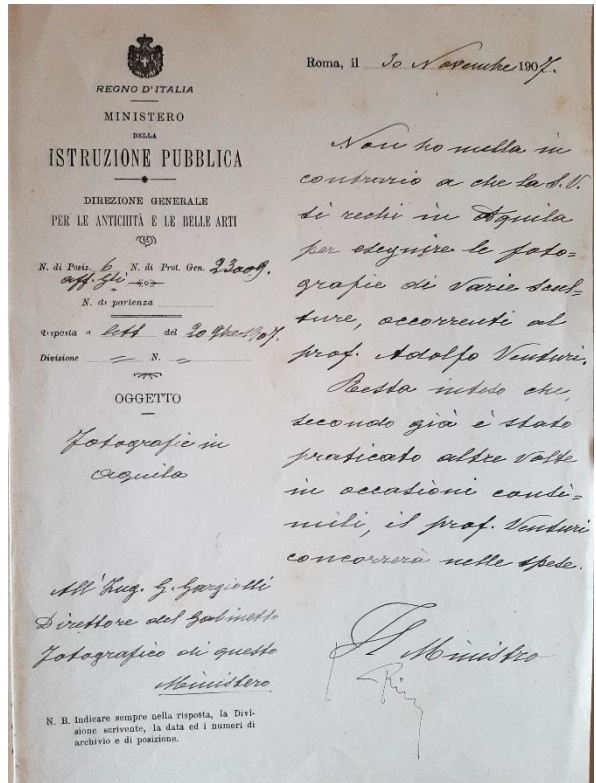 REGNO D'ITALIA
MINISTERO
DELLA
ISTRUZIONE PUBBLICA
DIREZIONE GENERALE
PER LE ANTICHITÀ E LE BELLE ARTI
N. di Posiz. 6 N. di Prot. Gen. 23009.
aff. Gli
N. di partenza
Risposta a lett del 20 9bre 1907.
Divisione = N. =
OGGETTO
Fotografie in
Aquila
All'Ing. G. Gargiolli
Direttore del Gabinetto
Fotografico di questo
Ministero
N. B. Indicare sempre nella risposta, la Divi-
sione scrivente, la data ed i numeri di
archivio e di posizione.
Roma, il 30 Novembre 1907.
Non ho nulla in
contrario a che la S. V.
si rechi in Aquila
per eseguire le foto=
grafie di varie scul=
ture, occorrenti al
prof. Adolfo Venturi.
Resta inteso che,
secondo già è stato
praticato altre volte
in occasioni consi=
mili, il prof. Venturi
concorrerà nelle spese.
Il Ministro